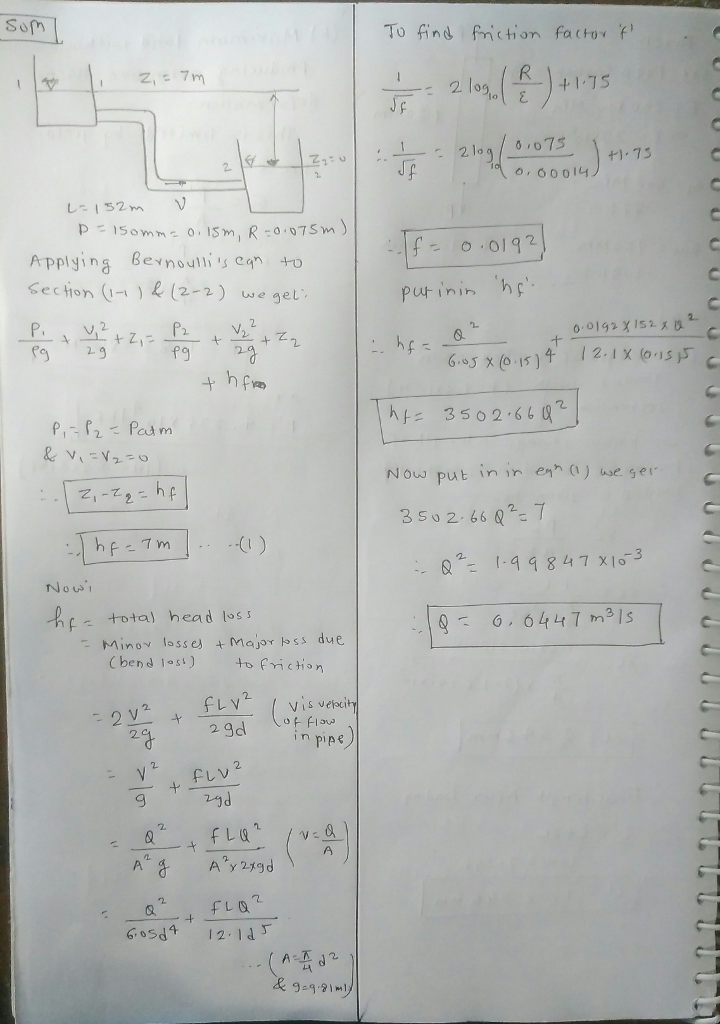 Soln
1 1 Z₁ = 7m
2 Z₂ = 0
2
L = 152m V
D = 150mm = 0.15m, R = 0.075m)
Applying Bernoulli's eqn to
Section (1-1) & (2-2) we get:
P₁/ρg + V₁²/2g + Z₁ = P₂/ρg + V₂²/2g + Z₂
+ hf
P₁ = P₂ = Patm
& V₁ = V₂ = 0
∴ Z₁ - Z₂ = hf
∴ hf = 7m ... --(1)
Now,
hf = total head loss
= Minor losses + Major loss due
(bend loss) to friction
= 2 V²/2g + fLV²/2gd (V is velocity of flow in pipe)
= V²/g + fLV²/2gd
= Q²/A²g + fLQ²/A²×2×gd (V = Q/A)
= Q²/6.05d⁴ + fLQ²/12.1d⁵
... (A = π/4 d²
& g = 9.81m/)
To find friction factor 'f'
1/√f = 2 log₁₀ (R/ε) + 1.75
∴ 1/√f = 2 log₁₀ (0.075/0.00014) + 1.75
∴ f = 0.0192
put in in 'hf'.
∴ hf = Q²/6.05 × (0.15)⁴ + 0.0192 × 152 × Q²/12.1 × (0.15)⁵
hf = 3502.66 Q²
Now put in in eqn (1) we get
3502.66 Q² = 7
∴ Q² = 1.99847 × 10⁻³
∴ Q = 0.0447 m³/s